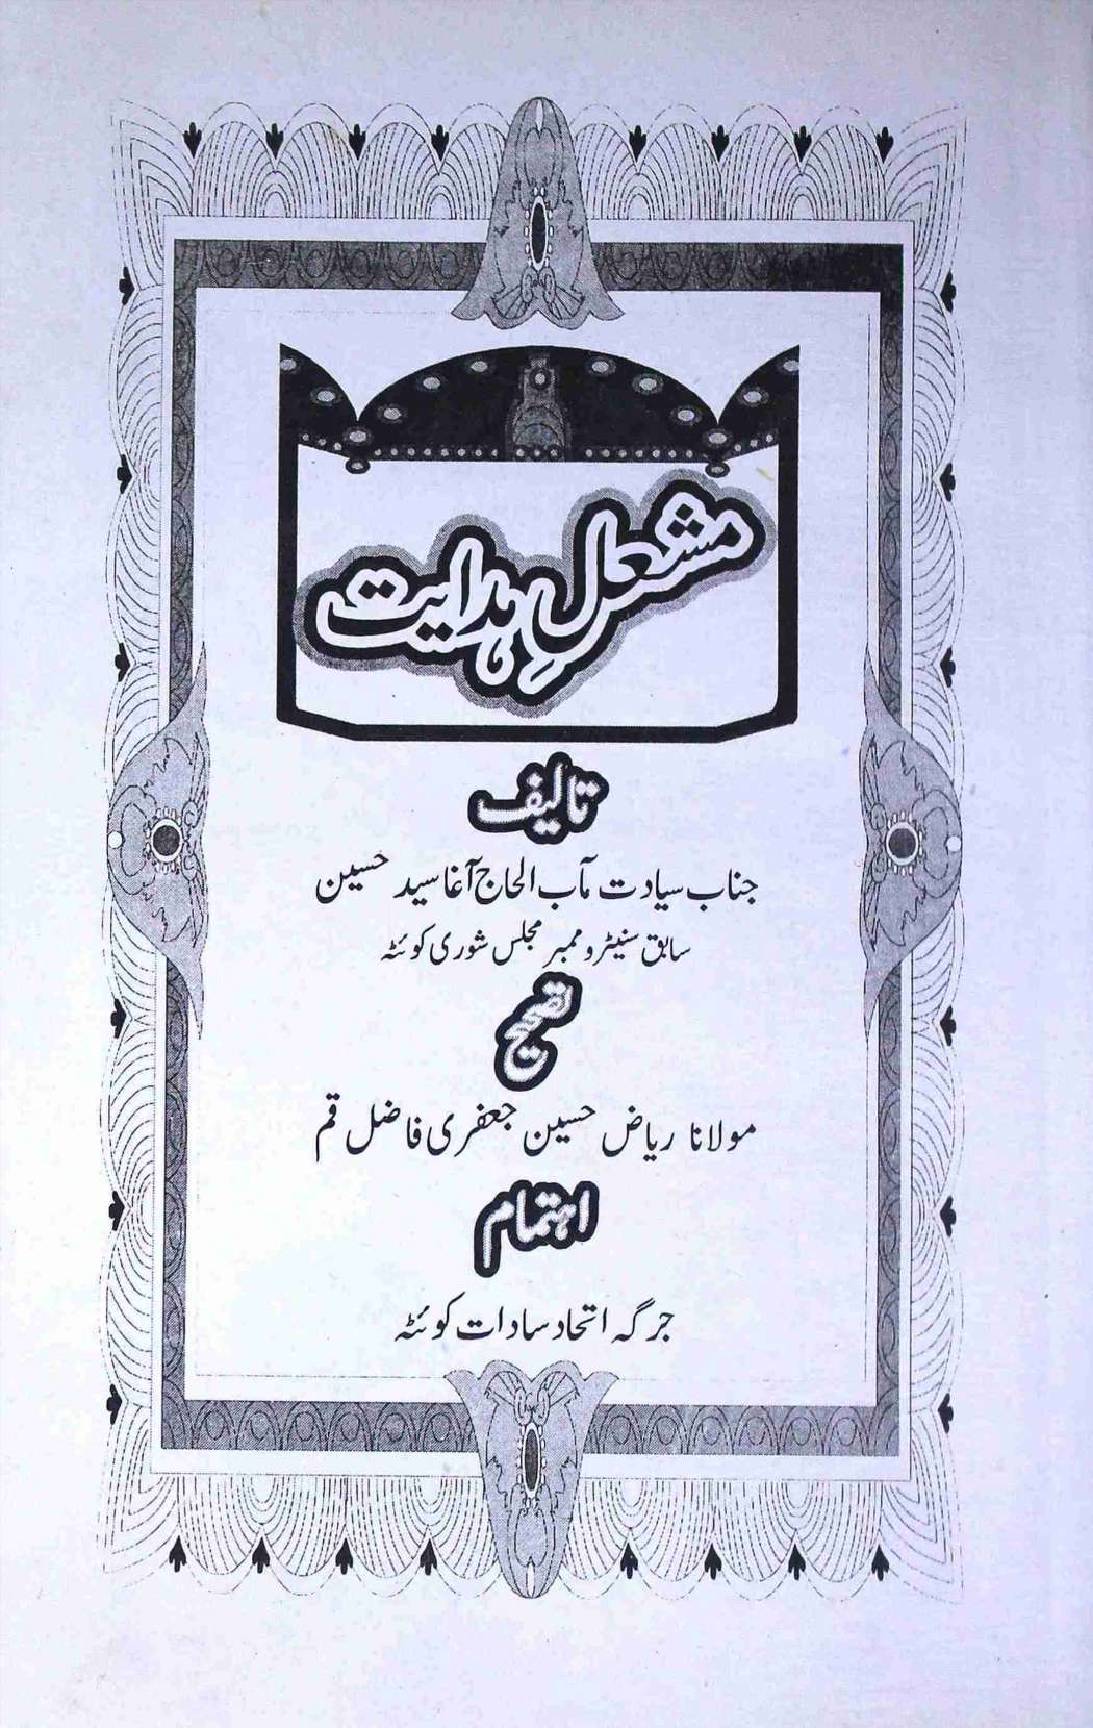 مشعلِ ہدایت
تالیف
جناب سیادت مآب الحاج آغا سید حسین
سابق سنیٹر و ممبر مجلس شوری کوئٹہ
تصحیح
مولانا ریاض حسین جعفری فاضل قم
اہتمام
جرگہ اتحاد سادات کوئٹہ